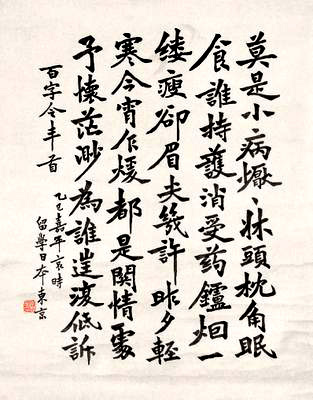 莫是小病懨懨牀頭枕角眠
食誰持護消受葯鑪烟一
縷瘦卻眉夫幾許昨夕輕
寒今宵乍煖都是関情處
予懷茫渺為誰遑復低訴
百字令半首
乙巳嘉平哀時
留學日本東京